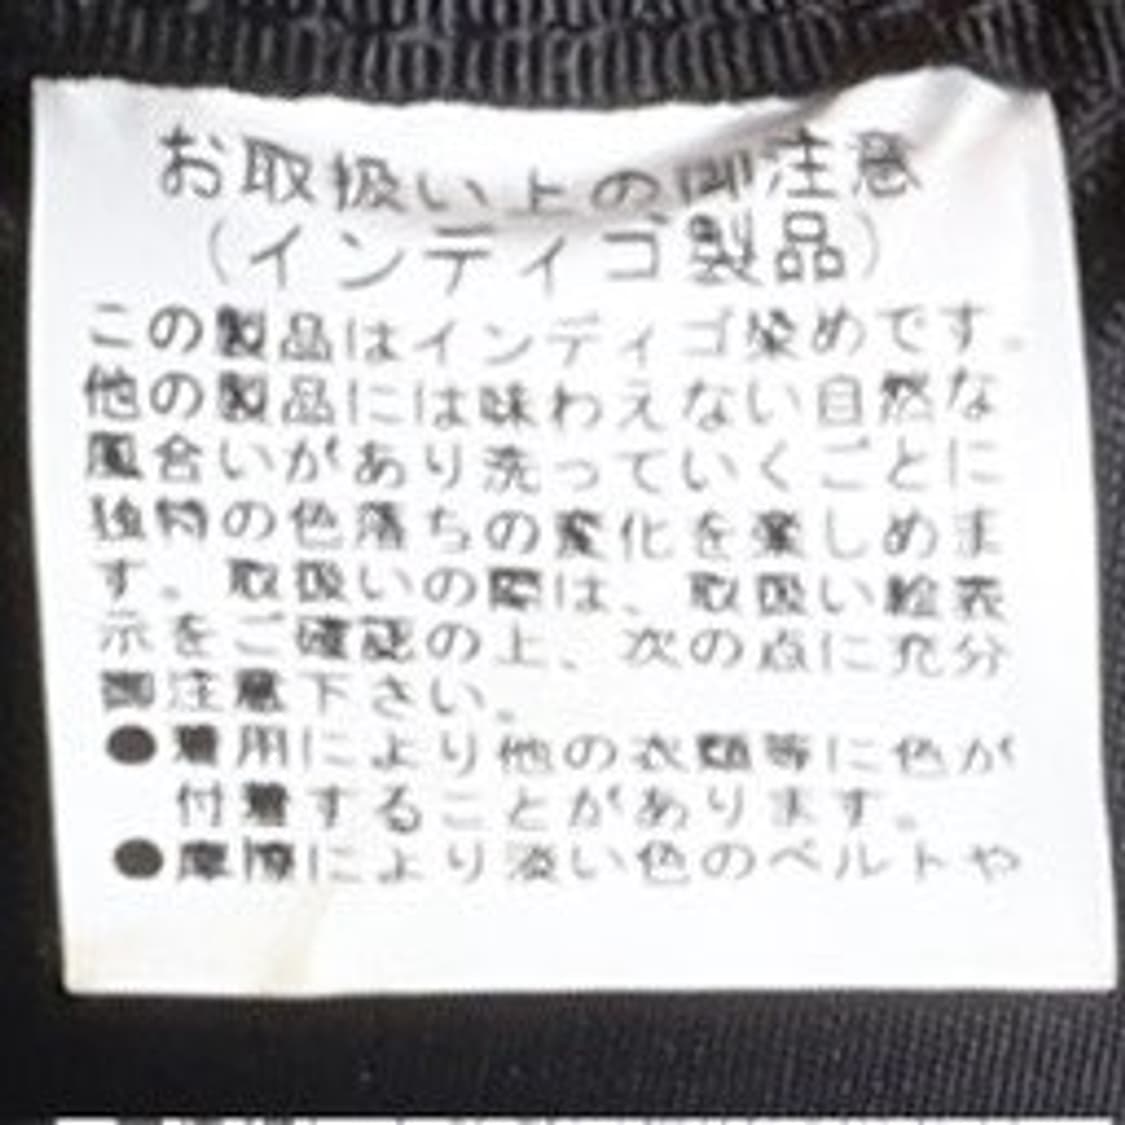 お取扱い上の御注意
(インディゴ製品)
この製品はインディゴ染めです。
他の製品には味わえない自然な
風合いがあり洗っていくごとに
独特の色落ちの変化を楽しめま
す。取扱いの際は、取扱い絵表
示をご確認の上、次の点に充分
御注意下さい。
●着用により他の衣類等に色が
付着することがあります。
●摩擦により淡い色のベルトや